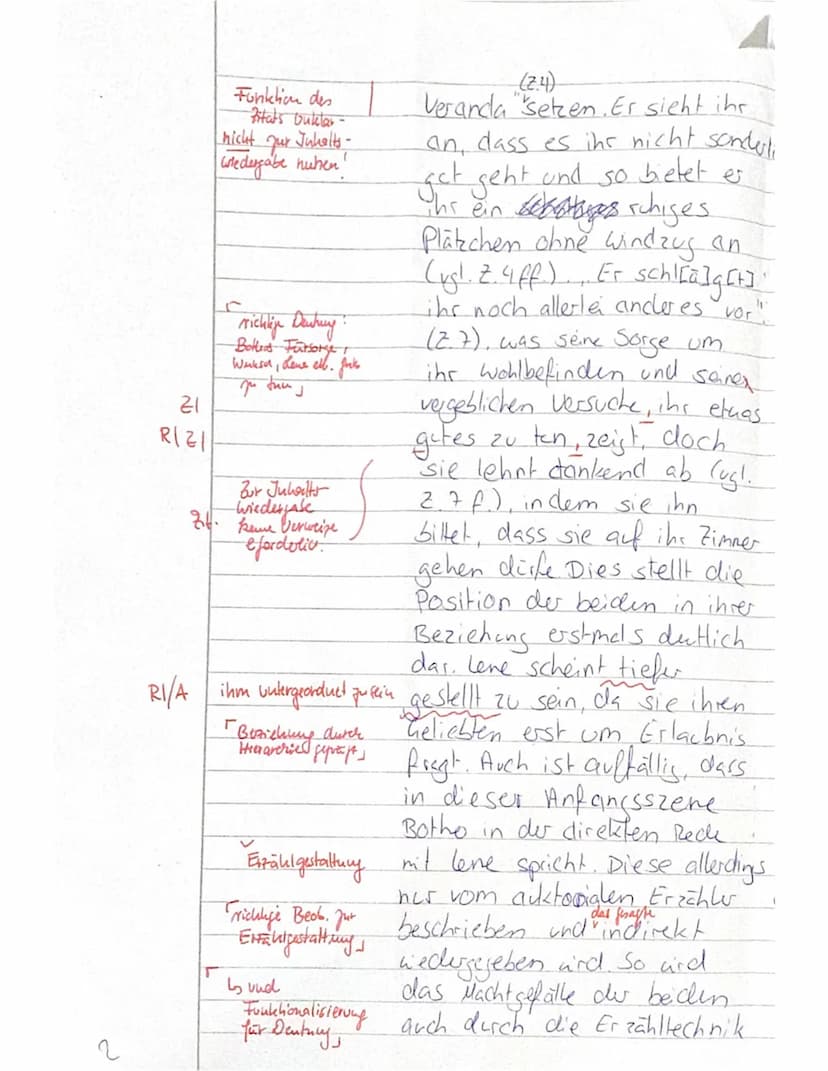 (Z.4)
Veranda" setzen. Er sieht ihr
an, dass es ihr nicht sonderl
gut geht und so bietet er
ihr ein ruhiges
Plätzchen ohne Windzug an
(vgl. Z. 4ff.). „Er schl[ä]g[t]
ihr noch allerlei anderes vor"
(Z. 7), was seine Sorge um
ihr Wohlbefinden und seinen
vergeblichen Versuche, ihr etwas
gutes zu tun, zeigt, doch
sie lehnt dankend ab (vgl.
Z. 7 f.), indem sie ihn
bittet, dass sie auf ihr Zimmer
gehen dürfe Dies stellt die
Position der beiden in ihrer
Beziehung erstmals deutlich
dar. Lene scheint tiefer
gestellt zu sein, da sie ihren
Geliebten erst um Erlaubnis
fragt. Auch ist auffällig, dass
in dieser Anfangsszene
Botho in der direkten Rede
mit Lene spricht. Diese allerdings
nur vom auktorialen Erzähler
das gesagte
beschrieben und indirekt
wiedergegeben wird. So wird
das Machtgefälle der beiden
auch durch die Erzähltechnik
Funktion des
Zitats unklar -
nicht zur Inhalts-
wiedergabe nutzen!
richtige Deutung:
Bothos Fürsorge,
Wunsch, Lene etw. Gutes
zu tun
ZI
R|ZI
Zur Inhalts-
wiedergabe
keine Verweise
erforderlich.
Zit.
R|/A
ihm untergeordnet zu sein
Beziehung durch
Hierarchie geprägt
✓
Erzählgestaltung
richtige Beob. zur
Erzählgestaltung
↳ und
Funktionalisierung
für Deutung
2